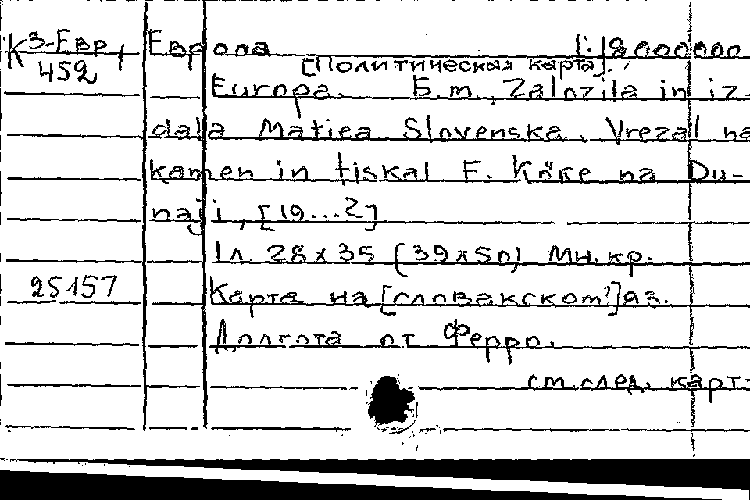 К 3-Евр, Европа 1:18000000
452 [Политическая карта].
Europa. Б.м., Zalozila in iz-
dala Matica Slovenska. Vrezal na
kamen in tiskal F. Köke na Du-
naji, [19...?]
1 л. 28x35 (39x50) Мн.кр.
25157 Карта на [словакском?] яз.
Долгота от Ферро.
см.след. карт.